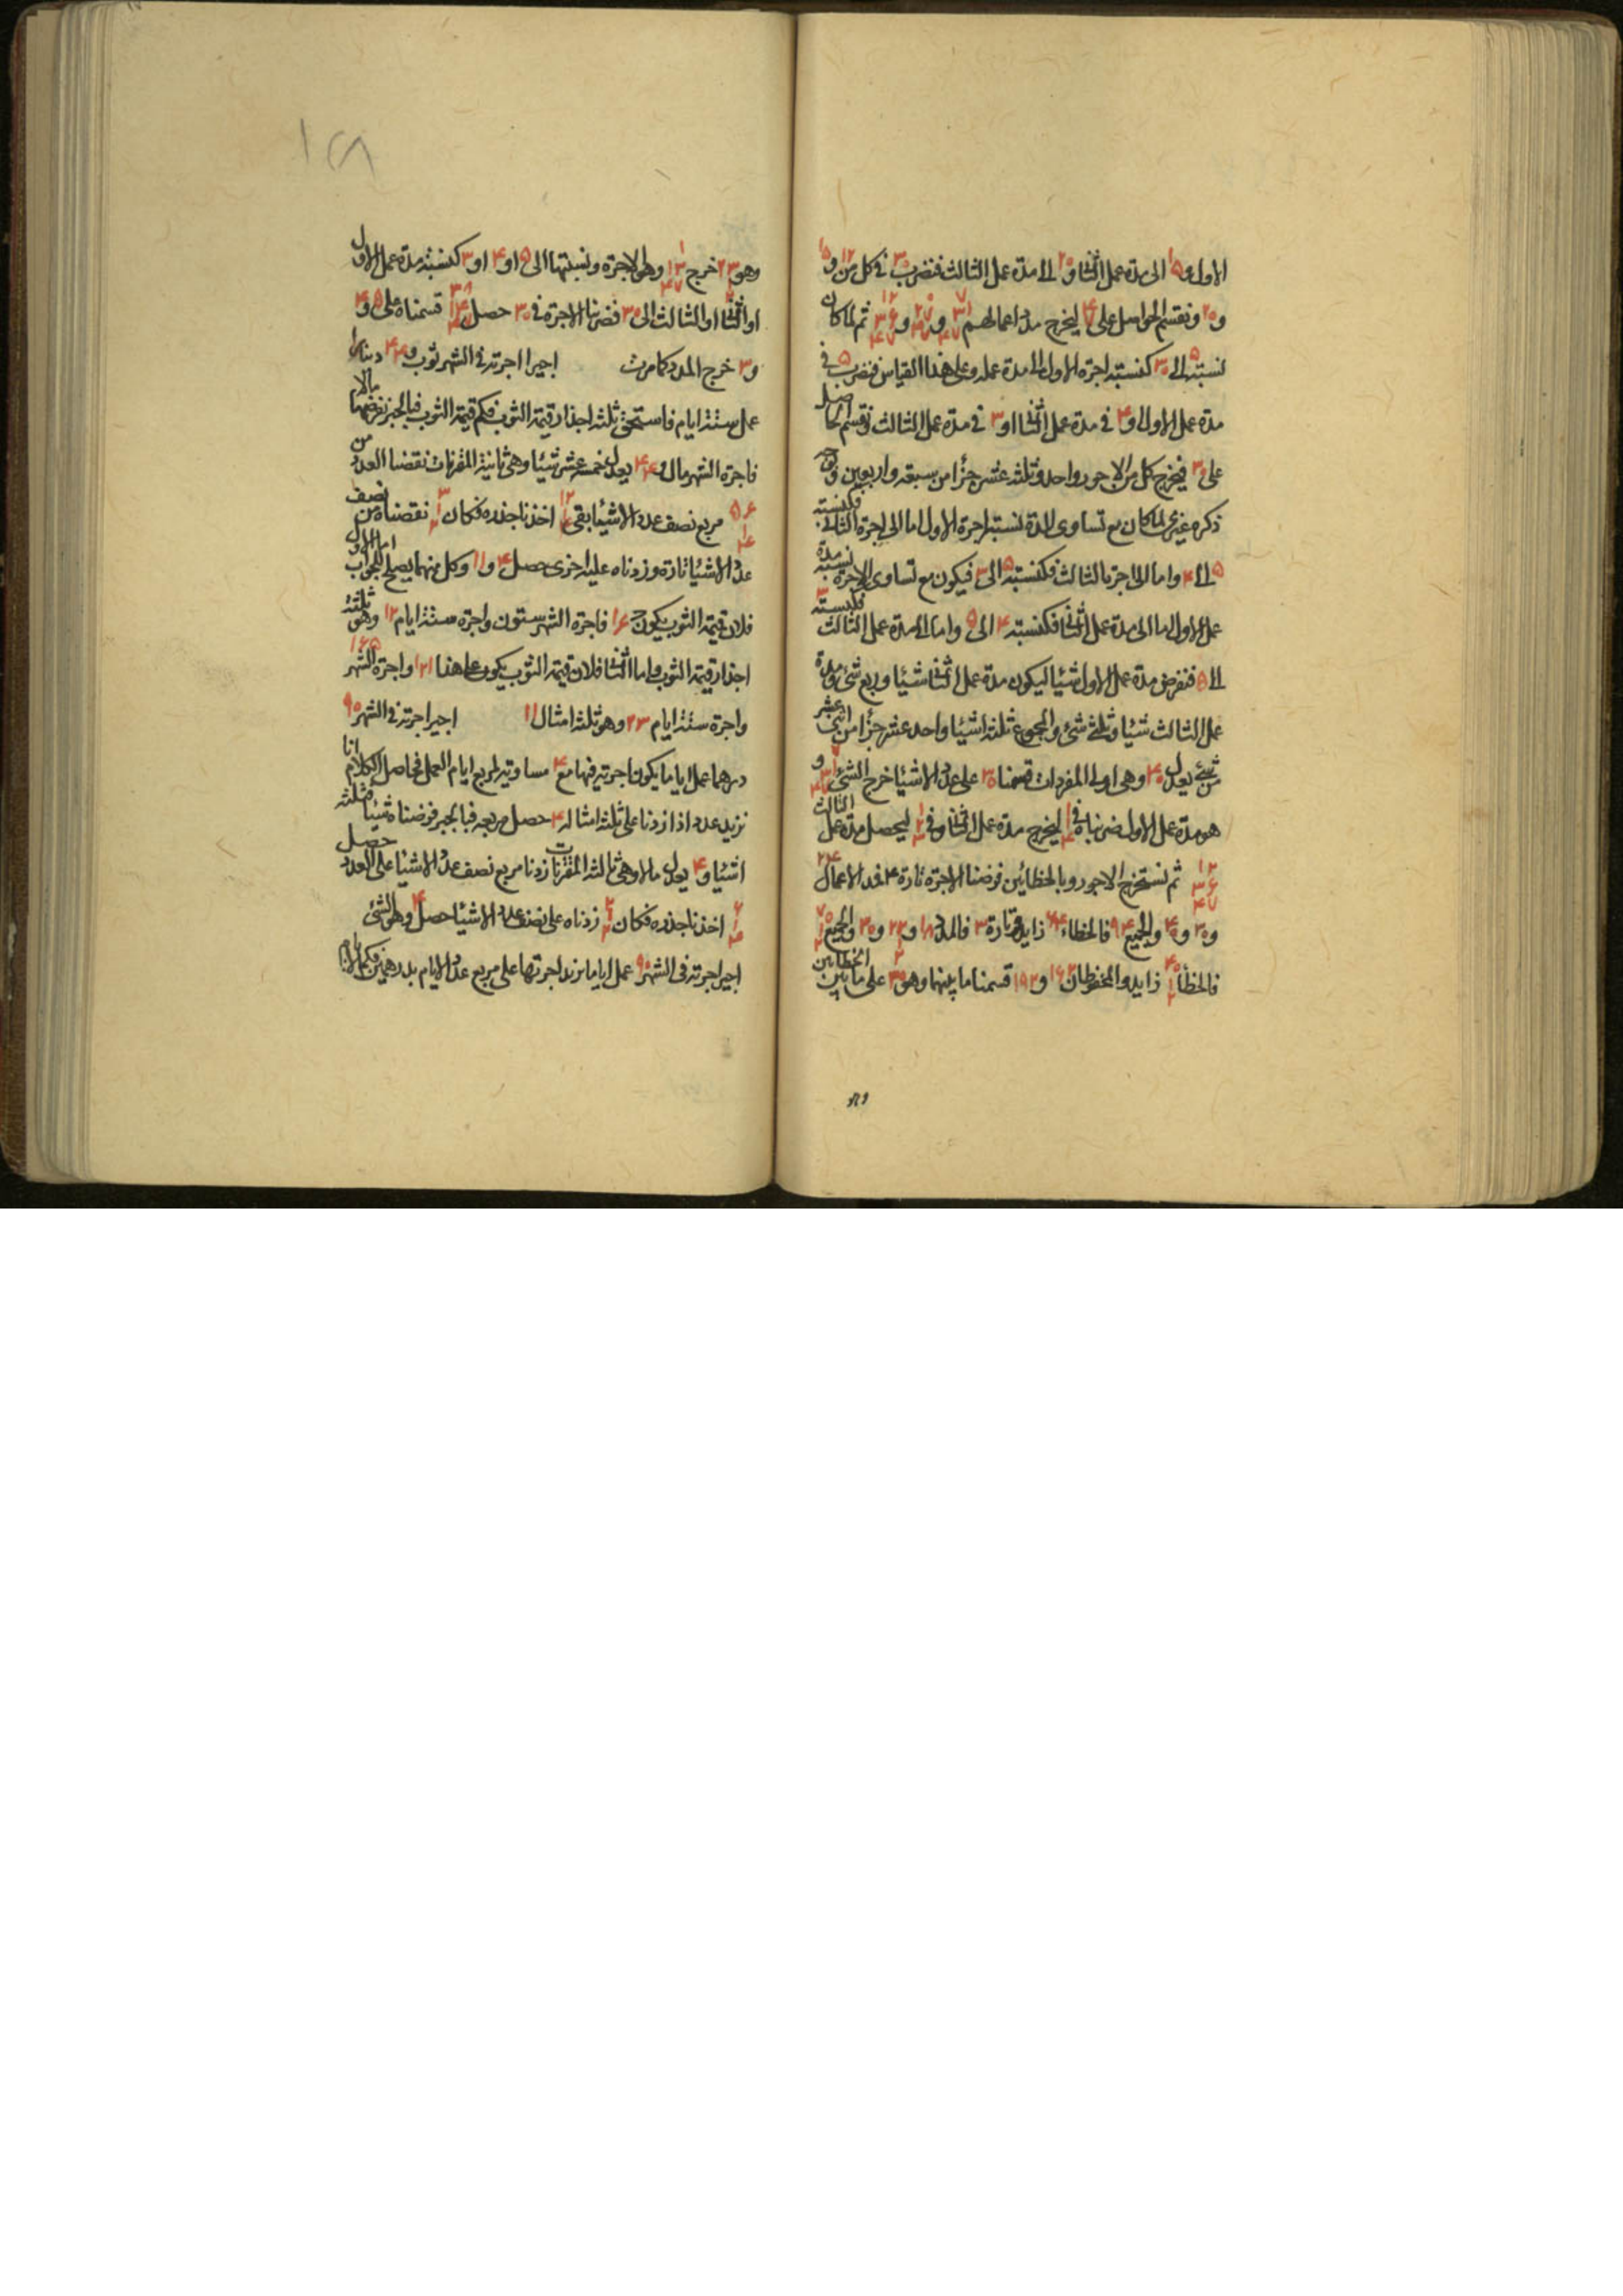 الاول و ۱۵ الى مدة عمل الثانى و ۲۰ الى مدة عمل الثالث فنضرب ۳۰ فى كل من ۱۲ و ۱۵
و ۲۰ ونقسم الحواصل على ۴۷ ليخرج مدد اعمالهم و و ثم لما كان
نسبته ۵ الى ۳۰ كنسبته اجرة الاول الى مدة عمله وعلى هذا القياس فنضرب ۵ فى
مدة عمل الاول و ۴ فى مدة عمل الثانى او ۳ فى مدة عمل الثالث ونقسم الحاصل
على ۳۰ فيخرج كل من الاجور واحد وثلثه عشر جزأ من سبعه واربعين
ذكره غيرى لما كان مع تساوى المدة نسبة اجرة الاول اما الى اجرة الثانى فكنسبته
۵ الى ۴ واما الى اجرة الثالث فكنسبته ۵ الى ۳ فيكون مع تساوى الاجرة نسبة مدة
عمل الاول اما الى مدة عمل الثانى فكنسبته ۴ الى ۵ واما الى مدة عمل الثالث فكنسبته ۳
الى ۵ فنفرض مدة عمل الاول شيئا ليكون مدة عمل الثانى شيئا وربع شئ ومدة
عمل الثالث شيئا وثلثى شئ والمجموع ثلثه اشيئا واحد عشر جزأ من اثنى عشر
من شئ يعدل ۳۰ وهى اولى المفردات قسمنا ۳۰ على عدد الاشيئا خرج الشئ و
هو مدة عمل الاول ضربناه فى ليخرج مدة عمل الثانى وفى ليحصل مدة عمل الثالث
ثم نستخرج الاجور بالخطائين فرضنا الاجرة تارة ۴ فمدد الاعمال ۲۴
و ۳۰ و ۴۰ والجميع ۹۴ فالخطاء ۶۴ زايد وتارة ۳ فالمدد ۱۸ و و ۳۰ والجميع
فالخطأ زايد والمحفوظان ۱۶۲ و ۱۹۲ قسمنا ما بينهما وهو ۳۰ على ما بين الخطأين
وهو خرج وهو الاجرة ونسبتها الى ۵ او ۴ او ۳ كنسبته مدة عمل الاول
او الثانى او الثالث الى ۳۰ فضربنا الاجرة فى ۳۰ حصل قسمناه على ۵ و ۴
و ۳ خرج المدد كما مرت اجير اجرته فى الشهر ثوب و ۴۴ دينارا
عمل ستة ايام فاستحق ثلثه اجذار قيمة الثوب فكم قيمة الثوب فبالجبر نفرضها مالا
فاجرة الشهر مال و ۴۴ يعدل خمسة عشر شيئا وهى ثانية المقترنات نقصنا العدد من
۵۶ مربع نصف عدد الاشيئا بقى ۱۲ اخذنا جذره فكان ۳ نقصناه من نصف
عدد الاشيئا تارة وزدناه عليه اخرى حصل ۴ و ۱۱ وكل منهما يصلح للجواب اما الاول
فلان قيمة الثوب يكون ح ۱۶ فاجرة الشهر ستون واجرة ستة ايام ۱۲ وهو ثلثه
اجذار قيمة الثوب واما الثانى فلان قيمة الثوب يكون على هذا ۱۲۱ واجرة الشهر ۱۶۵
واجرة ستة ايام ۳۳ وهو ثلثه امثال ۱۱ اجير اجرته فى الشهر ۹۰
درهما عمل اياما يكون اجرته فيها مع ۴ مساوية لمربع ايام العمل فحاصل الكلام انا
نريد عددا اذا زدنا على ثلثه امثاله ۴ حصل مربعه فبالجبر فرضناه شيئا فثلثه
اشيئا و ۴ يعدل مالا وهى ثالثه المقترنات زدنا مربع نصف عدد الاشيئا على العدد حصل
اخذنا جذره فكان زدناه على نصف عدد الاشيئا حصل ۴ وهو الشئ
اجير اجرته فى الشهر ۹۰ عمل اياما يزيد اجرتها على مربع عدد الايام بدرهمين فكم الايام